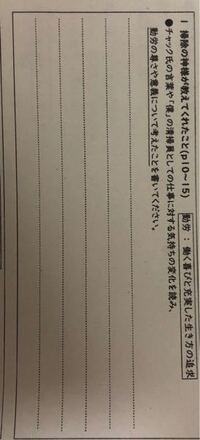 1 掃除の神様が教えてくれたこと(p10~15) 勤労:働く喜びと充実した生き方の追求
●チャック氏の言葉や「僕」の清掃員としての仕事に対する気持ちの変化を読み、
勤労の尊さや意義について考えたことを書いてください。